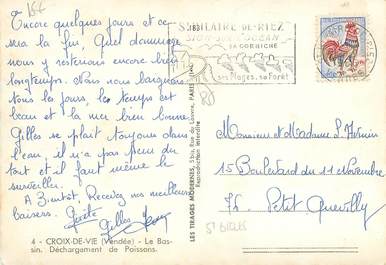 Encore quelques jours et ce
sera la fin, Quel dommage
nous y resterions encore bien
longtemps. Nous nous baignons
tous les jours, le temps est
beau et la mer bien bonne
Gilles se plait toujours dans
l'eau, il n'a pas peur du
tout et il faut même le
surveiller.
A Bientot, Recevez nos meilleurs
baisers.
Gilles
4 - CROIX-DE-VIE (Vendée) - Le Bas-
sin. Déchargement de Poissons.
LES TIRAGES MODERNES, 5bis, Rue du Louvre, PARIS
Reproduction interdite
ST HILAIRE-DE-RIEZ
SION SUR L'OCEAN
LA CORNICHE
ses Plages, sa Forêt
Monsieur et Madame L.
15 Boulevard du 11 Novembre
76. Petit Quevilly